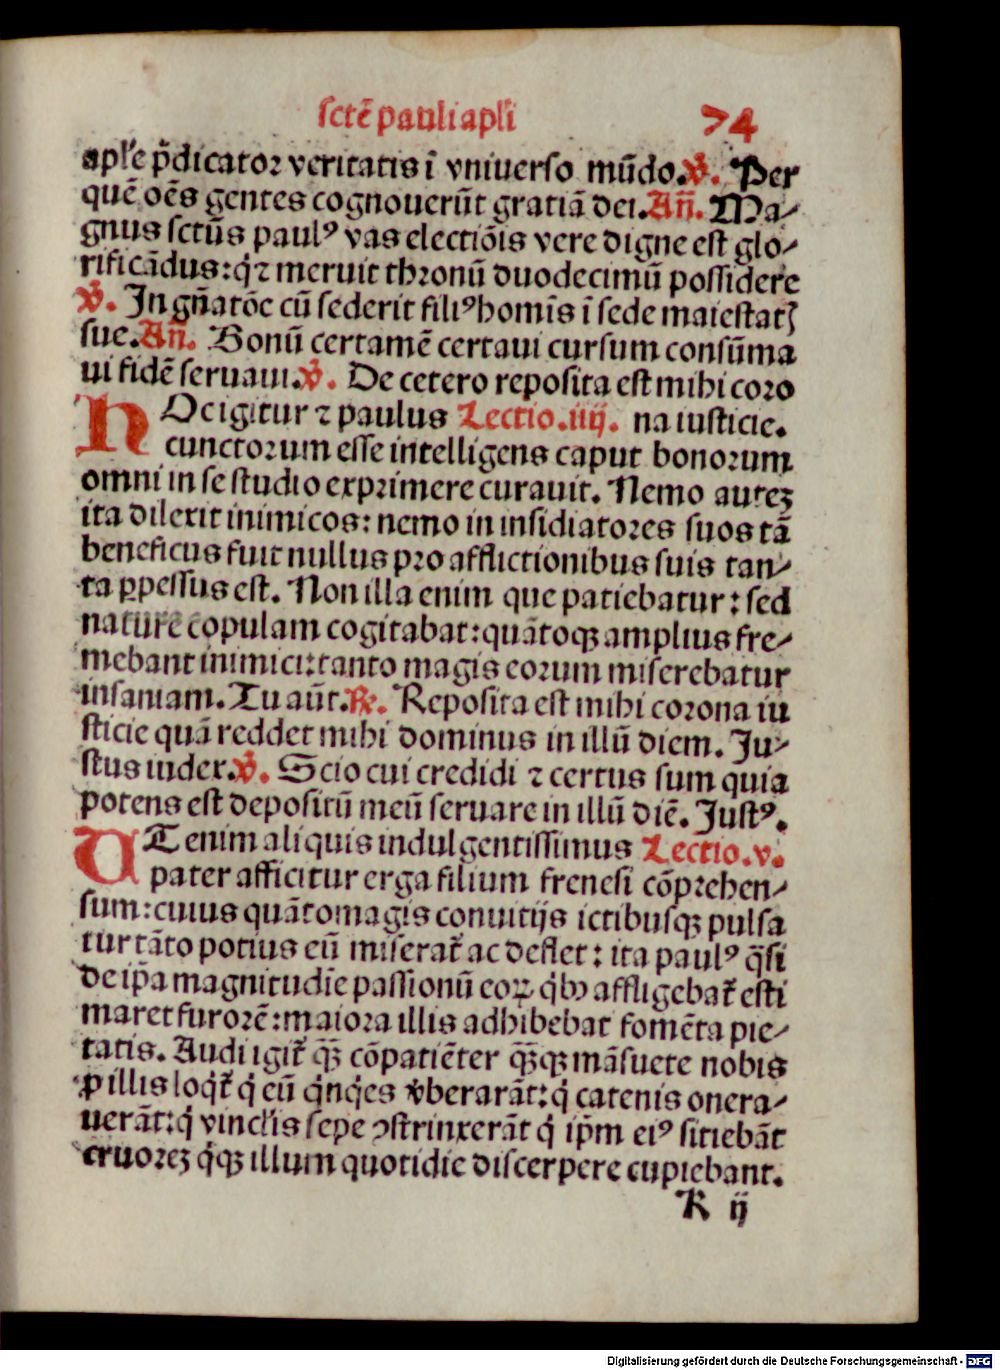 sctē pauli apłi 74
apłe p̄dicator veritatis ī vniuerso mūdo. V̄. Per
quē oēs gentes cognouerūt gratiā dei. Añ. Ma-
gnus sctūs paulꝰ vas electiōis vere digne est glo-
rificādus: q́ ⁊ meruit thronū duodecimū possidere
V̄. In gñatōe cū sederit filiꝰ homīs ī sede maiestatꝭ
sue. Añ. Bonū certamē certaui cursum consūma
ui fidē seruaui. V̄. De cetero reposita est mihi coro
HOc igitur ⁊ paulus Lectio. iiij. na iusticie.
cunctorum esse intelligens caput bonorum
omni in se studio exprimere curauit. Nemo auteꝫ
ita dilexit inimicos: nemo in insidiatores suos tā
beneficus fuit nullus pro afflictionibus suis tan-
ta ꝑpessus est. Non illa enim que patiebatur: sed
nature copulam cogitabat: quātoqꝫ amplius fre-
mebant inimici: tanto magis eorum miserebatur
insaniam. Tu aūt. ꝶ. Reposita est mihi corona iu
sticie quā reddet mihi dominus in illū diem. Ju-
stus iudex. V̄. Scio cui credidi ⁊ certus sum quia
potens est depositū meū seruare in illū diē. Justꝰ.
UT enim aliquis indulgentissimus Lectio. v.
pater afficitur erga filium frenesi cōprehen-
sum: cuius quāto magis conuitijs ictibusqꝫ pulsa
tur tāto potius eū miserat̄ ac deflet: ita paulꝰ q̄si
de ip̄a magnitudīe passionū eoꝝ q́bꝰ affligebat̄ esti
maret furorē: maiora illis adhibebat fomēta pie-
tatis. Audi igit̄ q̄ꝫ cōpatiēter q̄ꝫqꝫ māsuete nobis
ꝓ illis loq́t̄ q́ eū q́nq́es v̄berarāt: q́ catenis onera-
uerāt: q́ vinclis sepe ꝯstrinxerāt q́ ip̄m eiꝰ sitiebāt
cruoreꝫ q́qꝫ illum quotidie discerpere cupiebant.
K ij
Digitalisierung gefördert durch die Deutsche Forschungsgemeinschaft - DFG